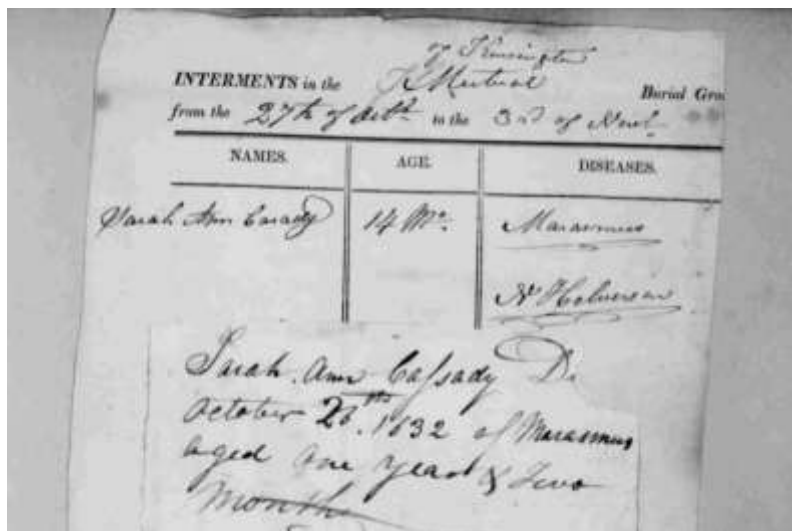 of Kensington
INTERMENTS in the Mutual Burial Gro
from the 27th of Octr. to the 3rd of Novr.
NAMES. AGE. DISEASES.
Sarah Ann Casady 14 Mo. Marasmus
Sarah Ann Cassady D
October 26th. 1832 of Marasmus
aged one year & Two
Month